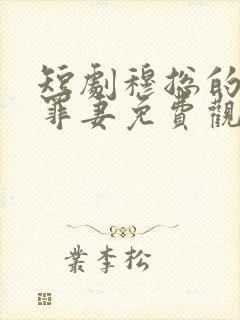 短劇穆總的
罪妻免費觀
業李松